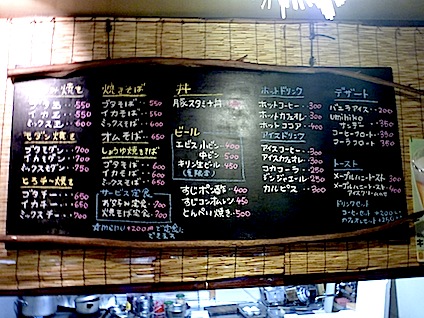 ブタ玉・・550
イカ玉・・550
ミックス玉・・600
モダン焼き
ブタモダン・・700
イカモダン・・700
ミックスモダン・・750
とろチー焼き
ブタチー・・・650
イカチー・・・650
ミックスチー・・700
焼きそば
ブタそば・・550
イカそば・・550
ミックスそば・・600
オムそば・・650
しょうゆ焼そば
ブタそば・・・600
イカそば・・・600
ミックスそば・・650
サービス定食
お好み定食・・700
焼そば定食・・700
☆menu+200円で定食に
できます
丼
豚スタミナ丼
ビール
エビス小ビン・・400
中ビン・・500
キリン生ビール・・450
すじポン酢・・・400
すじコンオムレツ・・450
とんぺい焼き・・500
ホットドリンク
ホットコーヒー・・300
ホットカフェオレ・・300
ホットココア・・・400
アイスドリンク
アイスコーヒー・・・300
アイスカフェオレ・・300
コカコーラ・・・250
ジンジャエール・・250
カルピス・・・300
デザート
バニラアイス・・・200
umihiko
サンデー・・・350
コーヒーフロート・・350
コーラフロート・・・350
トースト
メープルハニートースト・・300
メープルハニートースト・400
アイスクリームのせ
ドリンクセット
コーヒーセット +200
カフェオレセット +250